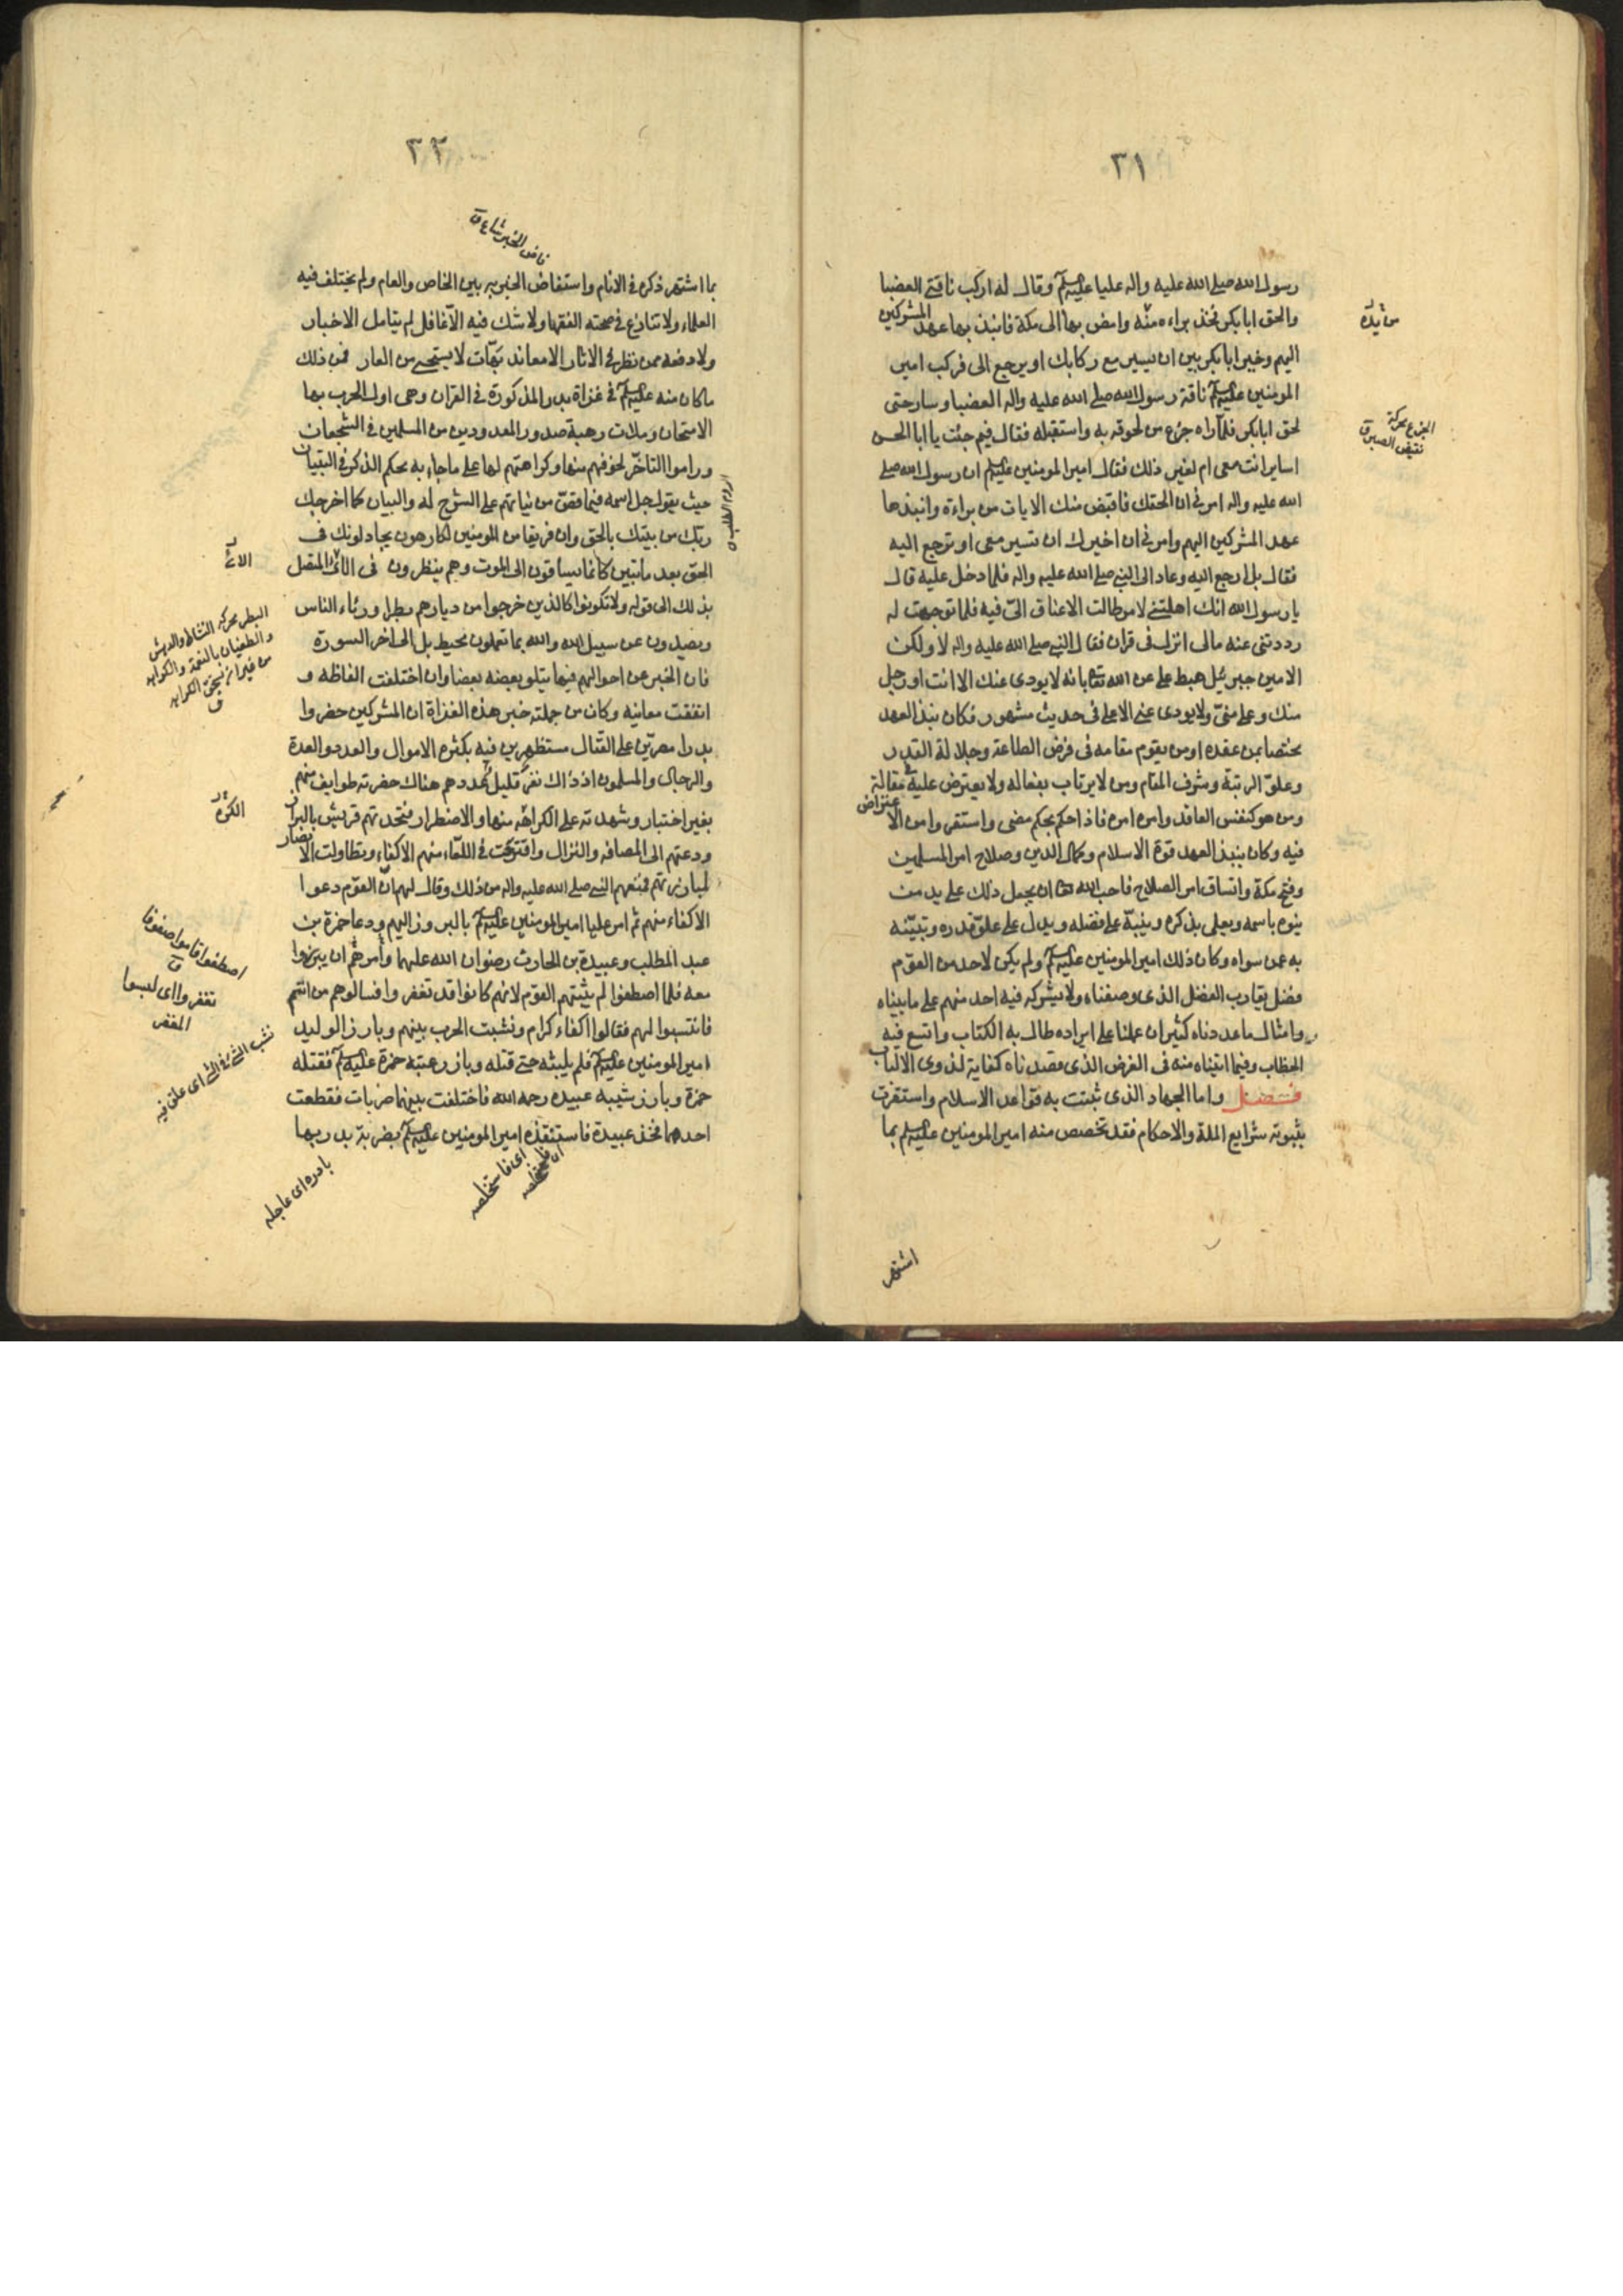 ٣١
رسول الله صلى الله عليه واله عليا عليه السلم وقال له اركب ناقتي العضبا
والحق ابابكر فخذ براءه منه وامض بها الى مكة فانبذ بها عهد المشركين
اليهم وخير ابابكر بين ان يسير مع ركابك او يرجع الى فركب امير
المومنين عليه السلم ناقة رسول الله صلى الله عليه واله العضبا وسار حتى
لحق ابابكر فلما راه جزع من لحوقه به واستقبله فقال فيم جئت يا ابا الحسن
اساير انت معى ام لغير ذلك فقال امير المومنين عليه السلم ان رسول الله صلى
الله عليه واله امرنى ان الحقك فاقبض منك الايات من براءة وانبذ بها
عهد المشركين اليهم وامرنى ان اخيرك ان تسير معى او ترجع اليه
فقال بل ارجع اليه وعاد الى النبى صلى الله عليه واله فلما دخل عليه قال
يا رسول الله انك اهلتنى لامر طالت الاعناق الىّ فيه فلما توجهت له
رددتنى عنه مالى انزل فى قران فقال النبى صلى الله عليه واله لا ولكن
الامين جبرئيل هبط على عن الله تعا بانه لا يودى عنك الا انت او رجل
منك وعلى منىّ ولا يودى عنى الا على فى حديث مشهور فكان نبذ العهد
مختصا بمن عقده او من يقوم مقامه فى فرض الطاعة وجلالة القدر
وعلوّ الرتبة وشرف المقام ومن لا يرتاب بفعاله ولا يعترض عليه مقاله
ومن هو كنفس العاقد وامره امره فاذا حكم بحكم مضى واستقر وامن الاعتراض
فيه وكان بنبذ العهد قوة الاسلام وكمال الدين وصلاح امر المسلمين
وفتح مكة واتساق امر الصلاح فاحب الله تعا ان يجعل ذلك على يد من
ينوه باسمه ويعلى بذكره وينبّه على فضله ويدل على علوّ قدره ويبيّنه
به عمن سواه وكان ذلك امير المومنين عليه السلم ولم يكن لاحد من القوم
فضل يقارب الفضل الذى وصفناه ولا يشركه فيه احد منهم على ما بيناه
وامثال ما عددناه كثير ان عملنا على ايراده طال به الكتاب واتسع فيه
الخطاب وفيما اثبتناه منه فى الغرض الذى قصدناه كفاية لذوى الالباب
فصل واما الجهاد الذى ثبتت به قواعد الاسلام واستقرت
بثبوته شرايع الملة والاحكام فقد تخصص منه امير المومنين عليه السلم بما
الجزع محركة
نقيض الصبر ق
اشتهر
٣٢
فاض الخبر شاع ق
بما اشتهر ذكره فى الانام واستفاض الخبر به بين الخاص والعام ولم يختلف فيه
العلماء ولا تنازع فى صحته الفقها ولا شك فيه الا غافل لم يتامل الاخبار
ولا دفعه ممن نظر فى الاثار الا معاند بهّات لا يستحى من العار فمن ذلك
ما كان منه عليه السلم فى غزاة بدر المذكورة فى القران وهى اول الحرب بها
الامتحان وملات رهبة صدور المعدودين من المسلمين فى الشجعان
وراموا التاخّر لخوفهم منها وكراهتهم لها على ما جاء به محكم الذكر فى التبيان
حيث يقول جل اسمه فيما قصّ من نباتهم على الشرح له والبيان كما اخرجك
ربّك من بيتك بالحق وان فريقا من المومنين لكارهون يجادلونك فى
الحق بعد ما تبين كانما يساقون الى الموت وهم ينظرون فى الائى المتصل
بذلك الى قوله ولا تكونوا كالذين خرجوا من ديارهم بطرا ورئاء الناس
ويصدون عن سبيل الله والله بما تعملون محيط بل الى اخر السورة
فان الخبر عن احوالهم فيها يتلو بعضه بعضا وان اختلفت الفاظه و
اتفقت معانيه وكان من جملة خبر هذه الغزاة ان المشركين حضروا
بدرا مصرين على القتال مستظهرين فيه بكثره الاموال والعدد والعدة
والرجال والمسلمون اذ ذاك نفر قليل عددهم هناك حضرته طوايف منهم
بغير اختيار وشهدته على الكراهه منها والاضطرار فتحدتهم قريش بالبراز
ودعتهم الى المصافه والنزال واقترحت فى اللقاء منهم الاكفاء وتطاولت الانصار
لمبارزتهم فمنعهم النبى صلى الله عليه واله من ذلك وقال لهم ان القوم دعوا
الاكفاء منهم ثم امر عليا امير المومنين عليه السلم بالبروز اليهم ودعا حمزة بن
عبد المطلب وعبيدة بن الحارث رضوان الله عليهما وامرهم ان يبرزوا
معه فلما اصطفوا لم يثبتهم القوم لانهم كانوا قد تغفروا فسالوهم من انتم
فانتسبوا لهم فقالوا اكفاء كرام ونشبت الحرب بينهم وبارز الوليد
امير المومنين عليه السلم فلم يلبثه حتى قتله وبارز عتبه حمزة عليه السلم فقتله
حمزة وبارز شيبه عبيده رحمه الله فاختلفت بينهما ضربات فقطعت
احدهما فخذ عبيدة فاستنقذه امير المومنين عليه السلم بضربة بدر بها
البطر محركه النشاط والدهش
والطغيان بالنعمة والكراهه
من غير ان يستحق الكراهه
ق
الكره
اصطفوا قاموا صفوفا
ق
تغفروا اى لبسوا
المغفر
نشب الشى فى الشى اى علق فيه
اى فاستخلصه
بادره اى عاجله